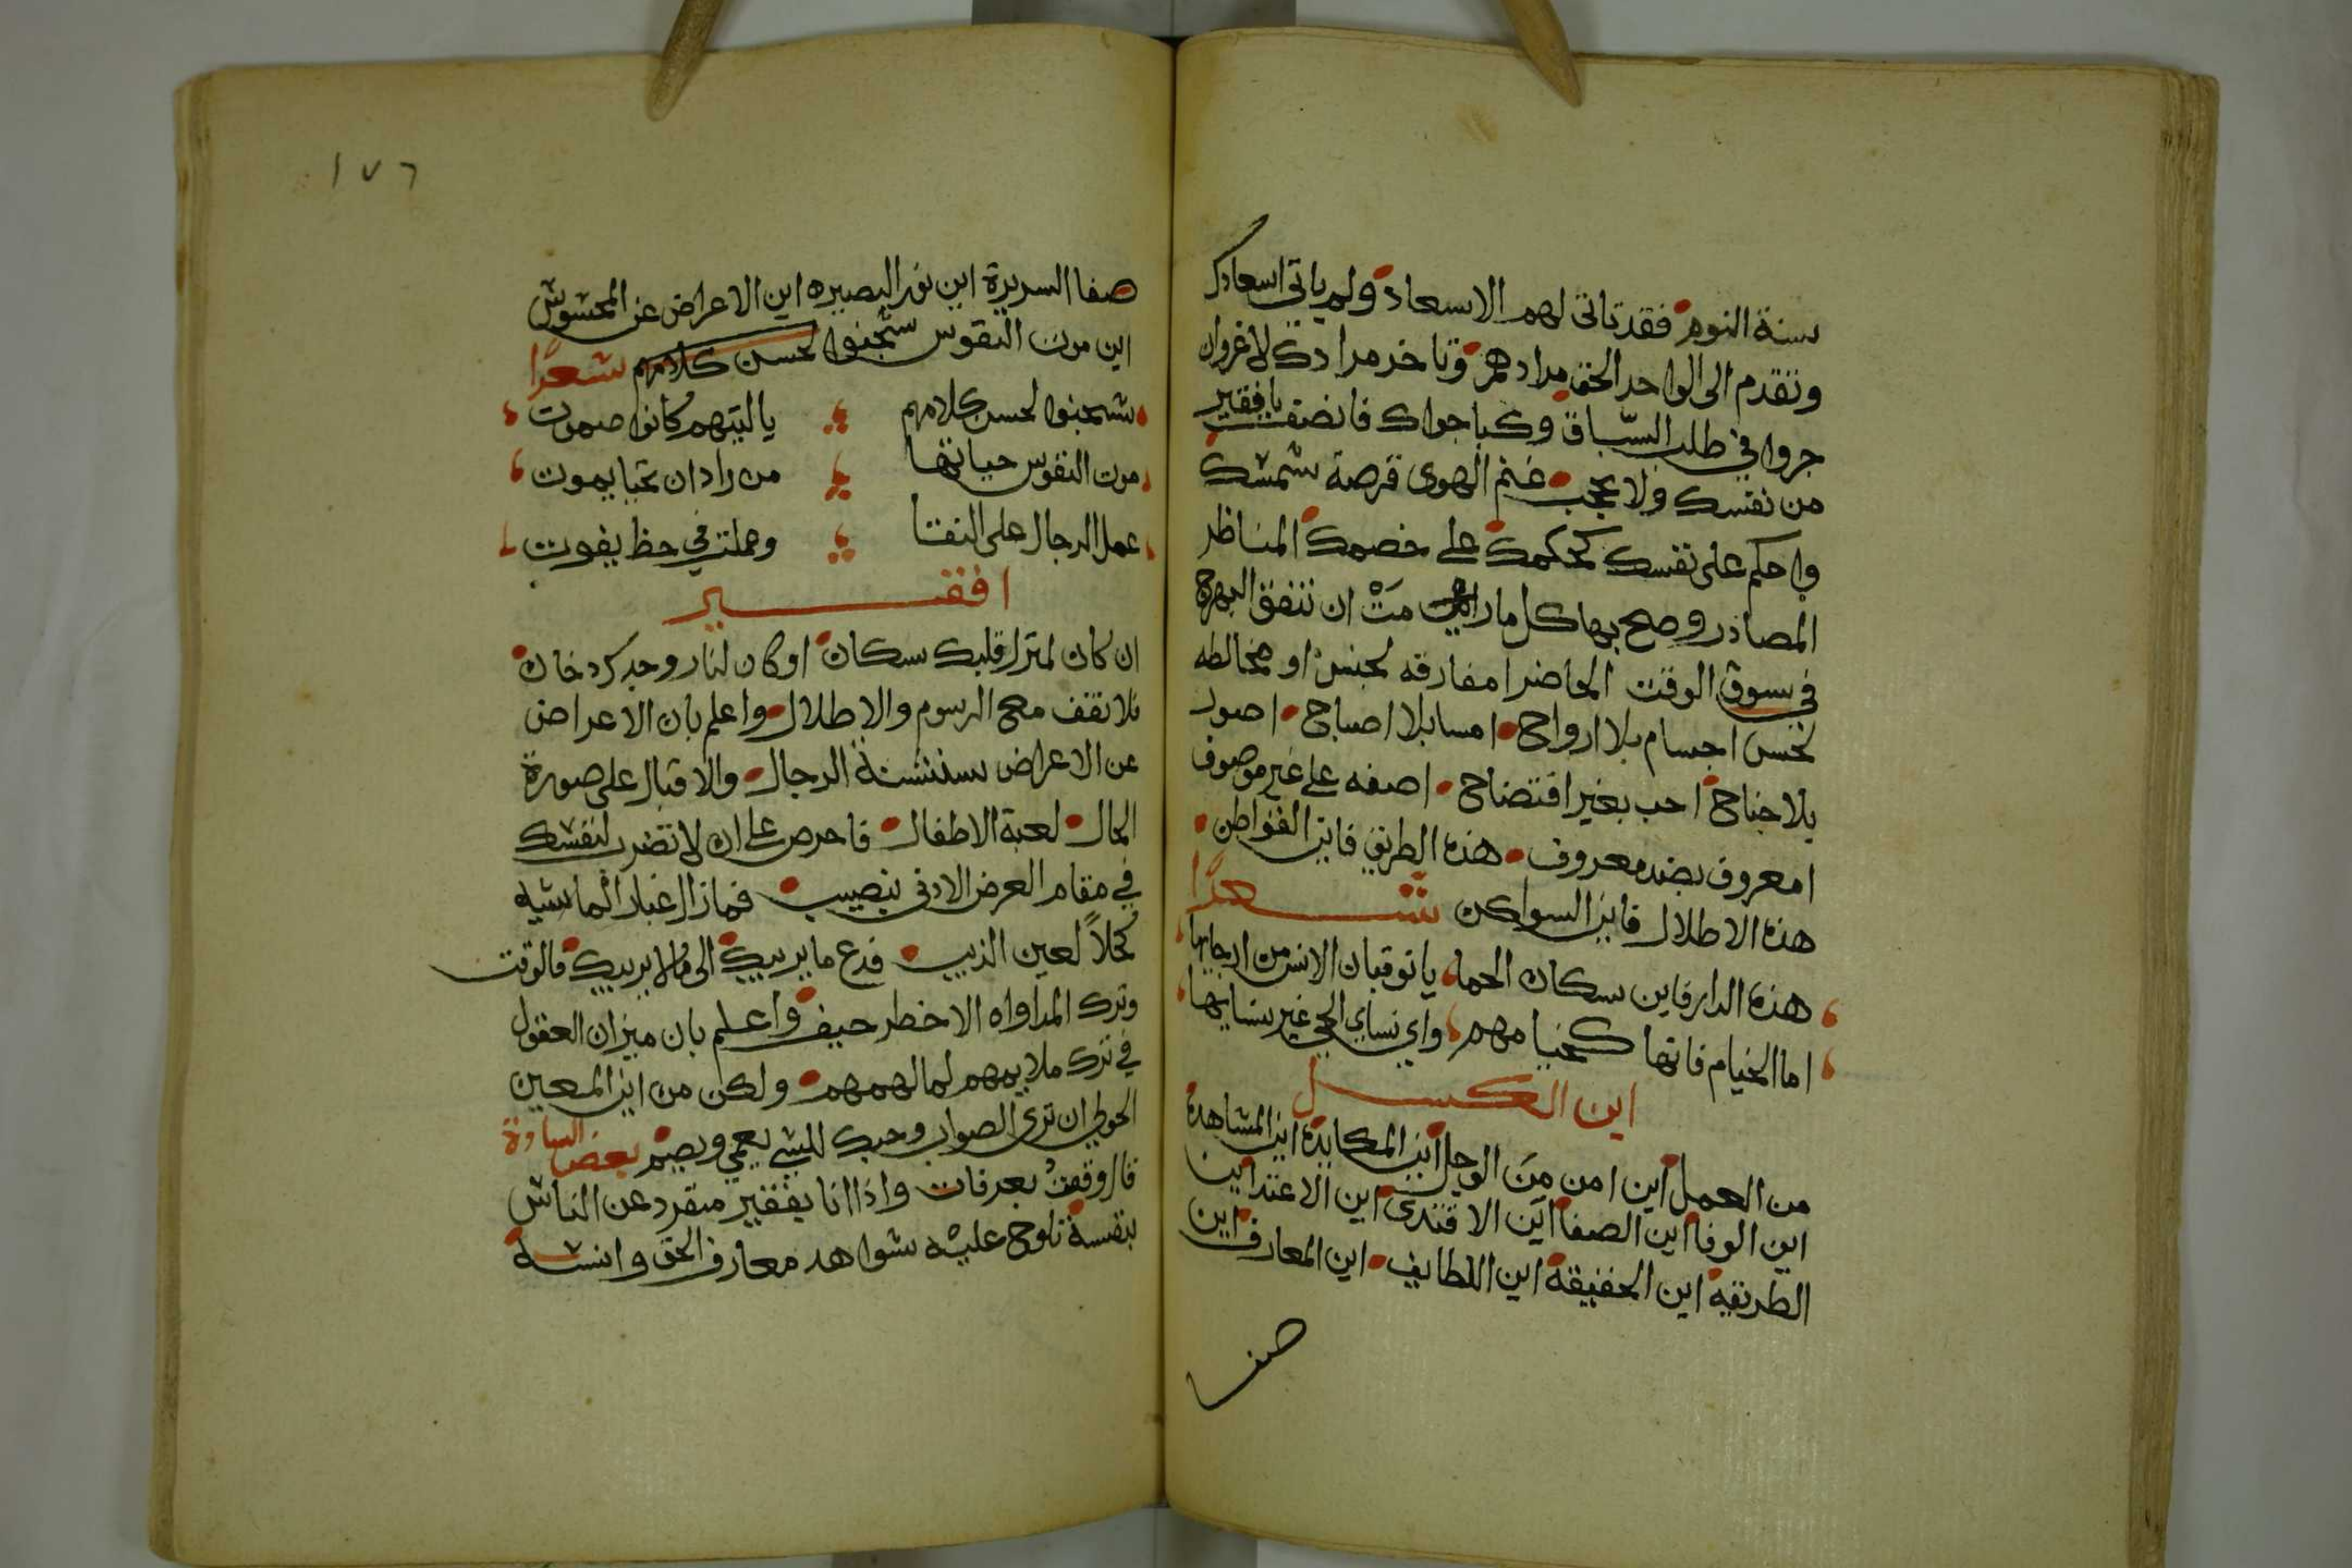 سنة النوم فقد تاتى لهم الاسعاد ولم ياتى اسعادك
وتقدم الى الواحد الحق مرادهم وتاخر مرادك لا غرو ان
جروا في طلب السباق وكبا جوادك فانصف يا فقير
من نفسك ولا تعجب غنم الهوى قرصة شمسك
واحكم على نفسك كحكمك على خصمك المناظر
المصادر وصح بها كل ما رايت مت ان تنفق البهرج
في سوق الوقت الحاضر امفارقه لجنس او مخالطه
لخس اجسام بلا ارواح امسا بلا اصباح اصور
بلا جناح احب بغير افتضاح اصفه على غير موصوف
امعروف بضد معروف هذه الطريق فاين القواطن
هذه الاطلال فاين السواكن شعرا
هذه الدار فاين سكان الحما يا توقبان الانس من ارجايها
اما الخيام فانها كخيامهم واي نساي الحي غير نسايها
اين الكسل
من العمل اين امن من الوجل اين المكابدة اين المشاهدة
اين الوفا اين الصفا اين الاقتدى اين الاعتدا اين
الطريقة اين الحقيقة اين اللطايف اين المعارف اين
صفا
١٧٦
صفا السريرة اين نور البصيره اين الاعراض عن المحشوش
اين موت النفوس ستجنوا لحسن كلامهم شعرا
ستجنوا لحسن كلامهم يا ليتهم كانوا صموت
موت النفوس حياتها من راد ان يحيا يموت
عمل الرجال على النقا وعملت في حظ يفوت
افقير
ان كان لمنزل قلبك سكان او كان لنار وجدك دخان
فلا تقف مع الرسوم والاطلال واعلم بان الاعراض
عن الاعراض سنشنة الرجال والاقبال على صورة
الحال لعبة الاطفال فاحرص على ان لا تضرب لنفسك
في مقام العرض الادنى بنصيب فمازال غبار الماشيه
كحلاً لعين الذيب فدع ما يريبك الى ما لا يريبك فالوقت
وترك المداواه الاخطر حيف واعلم بان ميزان العقول
في ترك ملايمهم لما لهمهم ولكن من اين المعين
الحوطي ان ترى الصواب وحبك للشي يعمي ويصم بعض السادة
قال وقفت بعرفات واذا انا بفقير منفرد عن الناس
بنفسه تلوح عليه شواهد معارف الحق وانسه